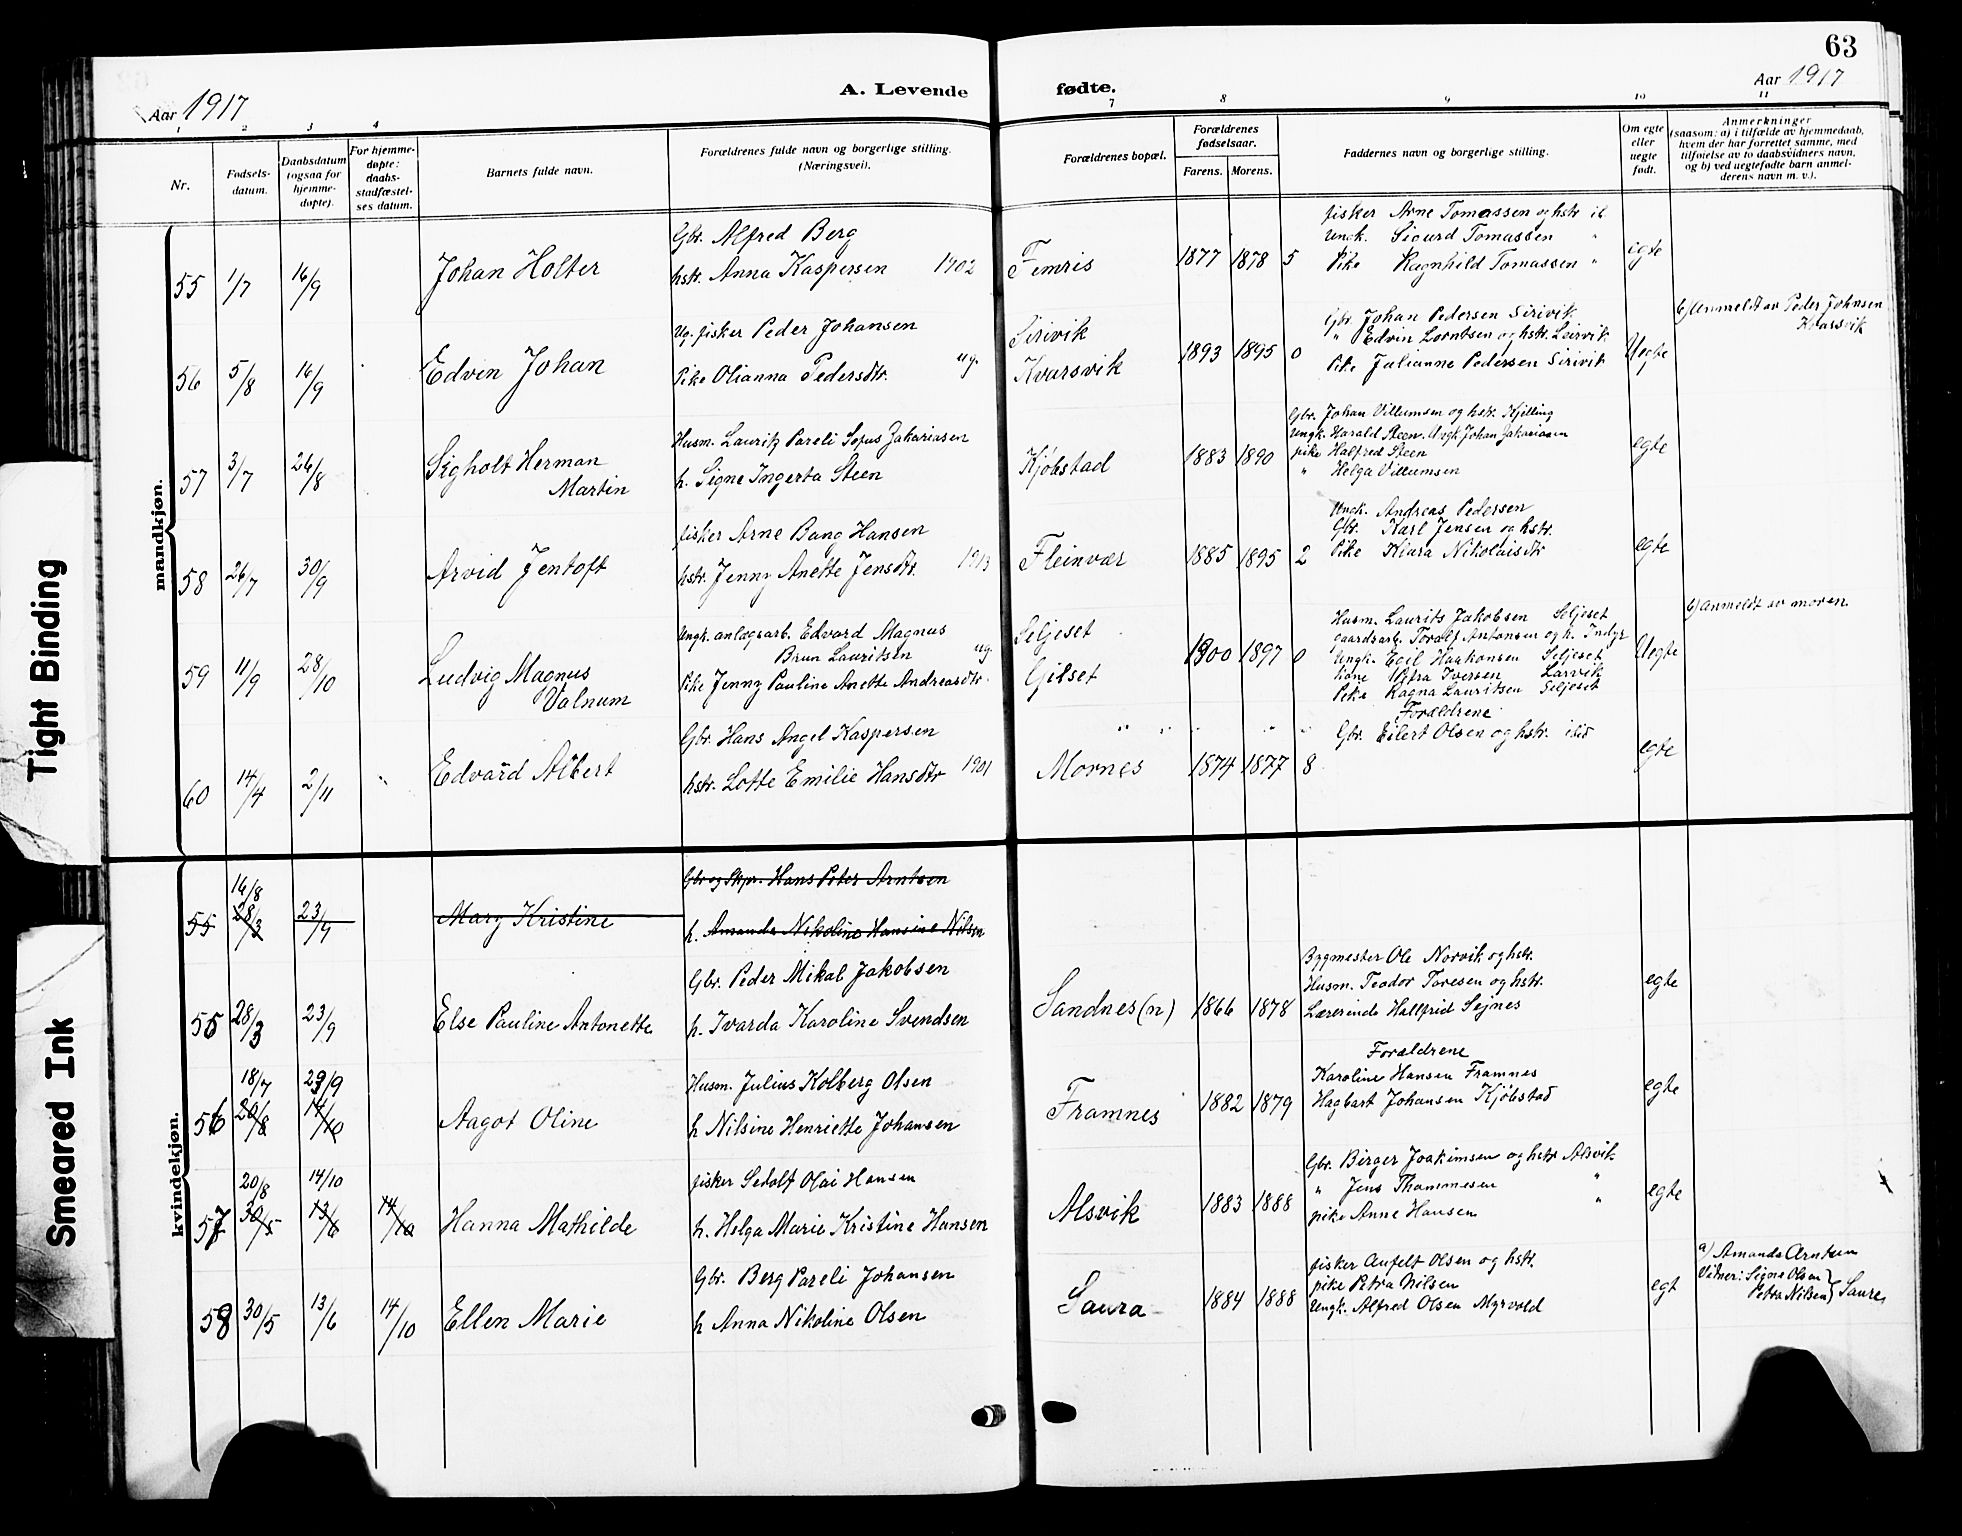 63
Aar 1917
A. Levende
fødte.
Aar 1917
1 2 3 4 7 8 9 10 11
Nr.
Fødsels-
datum.
Daabsdatum
(ogsaa for
hjemme-
døpte).
For hjemme-
døpte:
daabs-
stadfæstel-
ses datum.
Barnets fulde navn.
Forældrenes fulde navn og borgerlige stilling.
(Næringsvei).
Forældrenes bopæl.
Forældrenes
fødselsaar.
Farens. Morens.
Faddernes navn og borgerlige stilling.
Om egte
eller
uegte
født.
Anmerkninger
(saasom: a) i tilfælde av hjemmedaab,
hvem der har forrettet samme, med
tilføielse av to daabsvidners navn,
og b) ved uegtefødte barn anmel-
derens navn m. v.).
mandkjøn.
55 1/7 16/9 Johan Holter
Gbr. Alfred Berg
hstr. Anna Kaspersen 1902
Femris 1877 1878 5
fisker Arne Tomassen og hstr. ib.
Ungk. Sigurd Tomassen "
Pike Ragnhild Tomassen "
egte
56 5/8 16/9 Edvin Johan
Ug. fisker Peder Johansen
Pike Olianna Pedersdtr. ug.
Sirivik
Kvarsvik
1893 1895 0
Gbr. Johan Pedersen Sirivik
" Edvin Lorntsen og hstr. Leirvik
Pike Julianne Pedersen Sirivik
Uegte
b) Anmeldt av Peder Johnsen
Kvarsvik
57 3/7 26/8 Sigholt Herman
Martin
Husm. Lauritz Pareli Sofus Zakariasen
h. Signe Ingerta Steen
Kjøbstad 1883 1890
Gbr. Johan Villumsen og hstr. Kjelling
Ungk. Harald Steen. Ungk Johan Zakariasen
pike Halfred Steen
" Helga Villumsen
egte
58 26/7 30/9 Arvid Jentoft
fisker Arne Bang Hansen
hstr. Jenny Anette Jensdtr. 1913
Fleinvær 1885 1895 2
Ungk. Andreas Pedersen
Gbr. Karl Jensen og hstr.
Pike Klara Nikolaisdtr
egte
59 11/9 28/10 Ludvig Magnus
Valnum
Ungk. anlægsarb. Edvard Magnus
Brun Lauritsen ug.
Pike Jenny Pauline Anette Andreasdtr.
Seljeset
Gilset
1900 1897 0
Husm. Laurits Jakobsen Seljeset
Gaardsarb. Toralf Antonsen og h. Indyr
Ungk. Egil Haakonsen Seljeset
Kone Iversen Larvik
Pike Ragna Lauritsen Seljeset
Uegte
b) anmeldt av moren.
60 14/4 2/11 " Edvard Albert
Gbr. Hans Angel Kaspersen
hstr. Lotte Emilie Hansdtr 1901
Mornes 1874 1877 8
Forældrene
Gbr. Eilert Olsen og hstr. ibid
egte
kvindekjøn.
55 16/8 28/3 23/9 Mary Kristine
Gbr og Skpr. Hans Peter Arntsen
h. Amanda Nikoline Hansine Nilsen
55 28/3 23/9 Else Pauline Antonette
Gbr. Peder Mikal Jakobsen
h. Ivarda Karoline Svendsen
Sandnes (n) 1866 1878
Bygmester Ole Norvik og hstr.
Husm. Teodor Toresen og hstr.
Lærerinde Hallfrid Sejnes
egte
56 18/7 20/8 23/9 14/10 Aagot Oline
Husm. Julius Kolberg Olsen
h Nilsine Henriette Johansen
Framnes 1882 1879
Forældrene
Karoline Hansen Framnes
Hagbart Johansen Kjøbstad
egte
57 20/8 30/5 14/10 13/6 14/10 Hanna Mathilde
fisker Sedolf Olai Hansen
h. Helga Marie Kristine Hansen
Alsvik 1883 1888
Gbr. Birger Joakimsen og hstr Alsvik
" Jens Thommesen "
pike Anne Hansen "
egte
58 30/5 13/6 14/10 Ellen Marie
Gbr. Berg Pareli Johansen
h Anna Nikoline Olsen
Saura 1884 1888
fisker Anfelt Olsen og hstr.
pike Petra Nilsen
Ungk. Alfred Olsen Myrvold
egt
a) Amanda Arntsen
Vitner: Signe Olsen
Petra Nilsen } Saura
Tight Binding
Smeared Ink